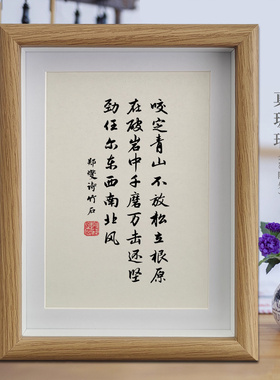 咬定青山不放松立根原
在破岩中千磨万击还坚
劲任尔东西南北风
郑燮诗竹石